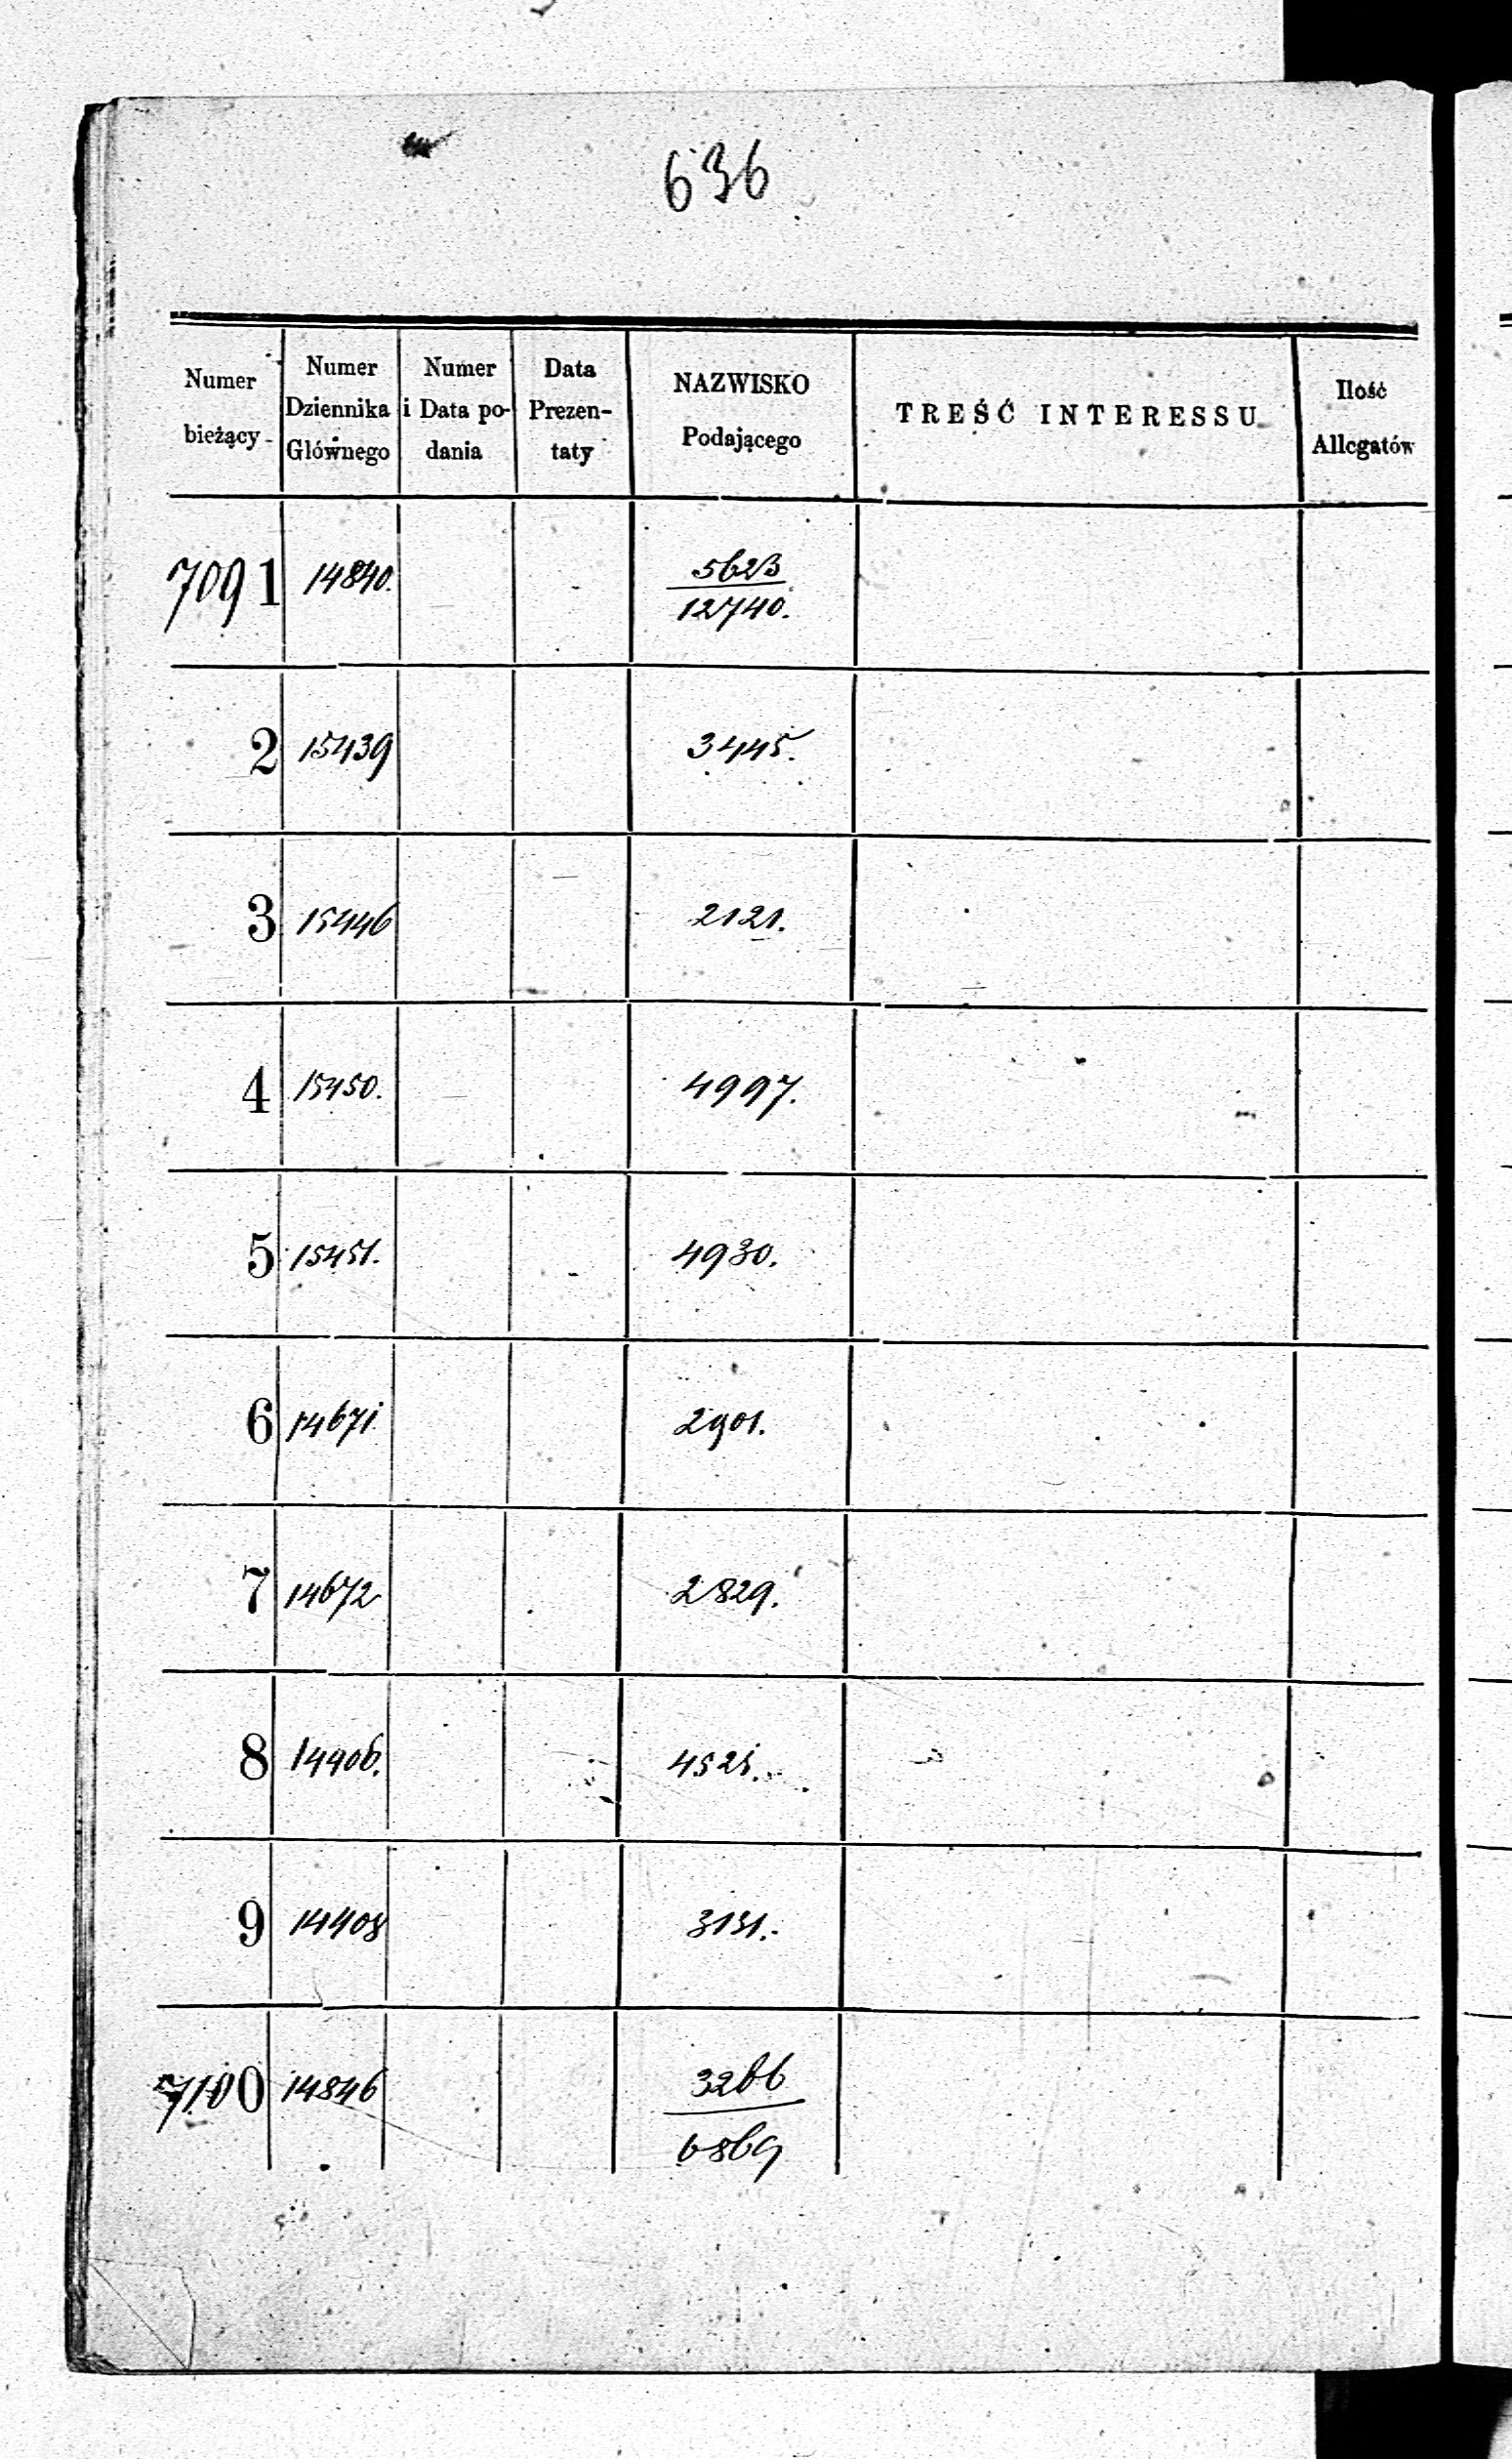 636
Numer bieżący
Numer Dziennika Głównego
Numer i Data podania
Data Prezentaty
NAZWISKO Podającego
TREŚĆ INTERESSU
Ilość Allegatów
7091 14840. 5623
12740.
2 15439 3445.
3 15446 2121.
4 15450. 4997.
5 15451. 4930.
6 14671 2901.
7 14672 2829.
8 14406. 4521.
9 14408 3131.
7100 14846 3266
6869